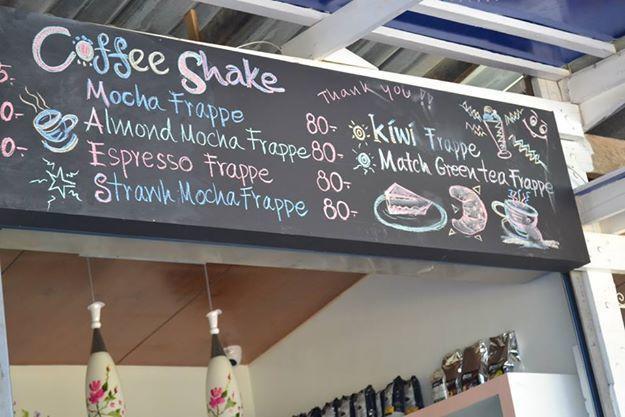 Coffee Shake
Mocha Frappe 80.-
Almond Mocha Frappe 80.-
Espresso Frappe 80.-
Strawh Mocha Frappe 80.-
Thank You
kiwi Frappe
Match Green tea Frappe